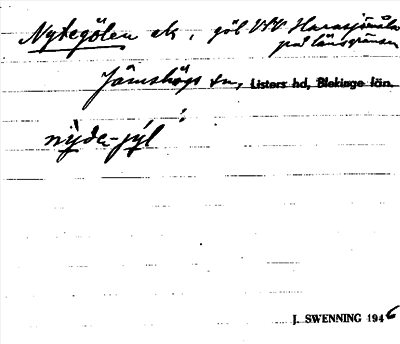 Nytegölen ek, göl VSV Harasjömåla
på länsgränsen
Jämshögs sn, Listers hd, Blekinge län.
nỳde-jýl
J. SWENNING 1946